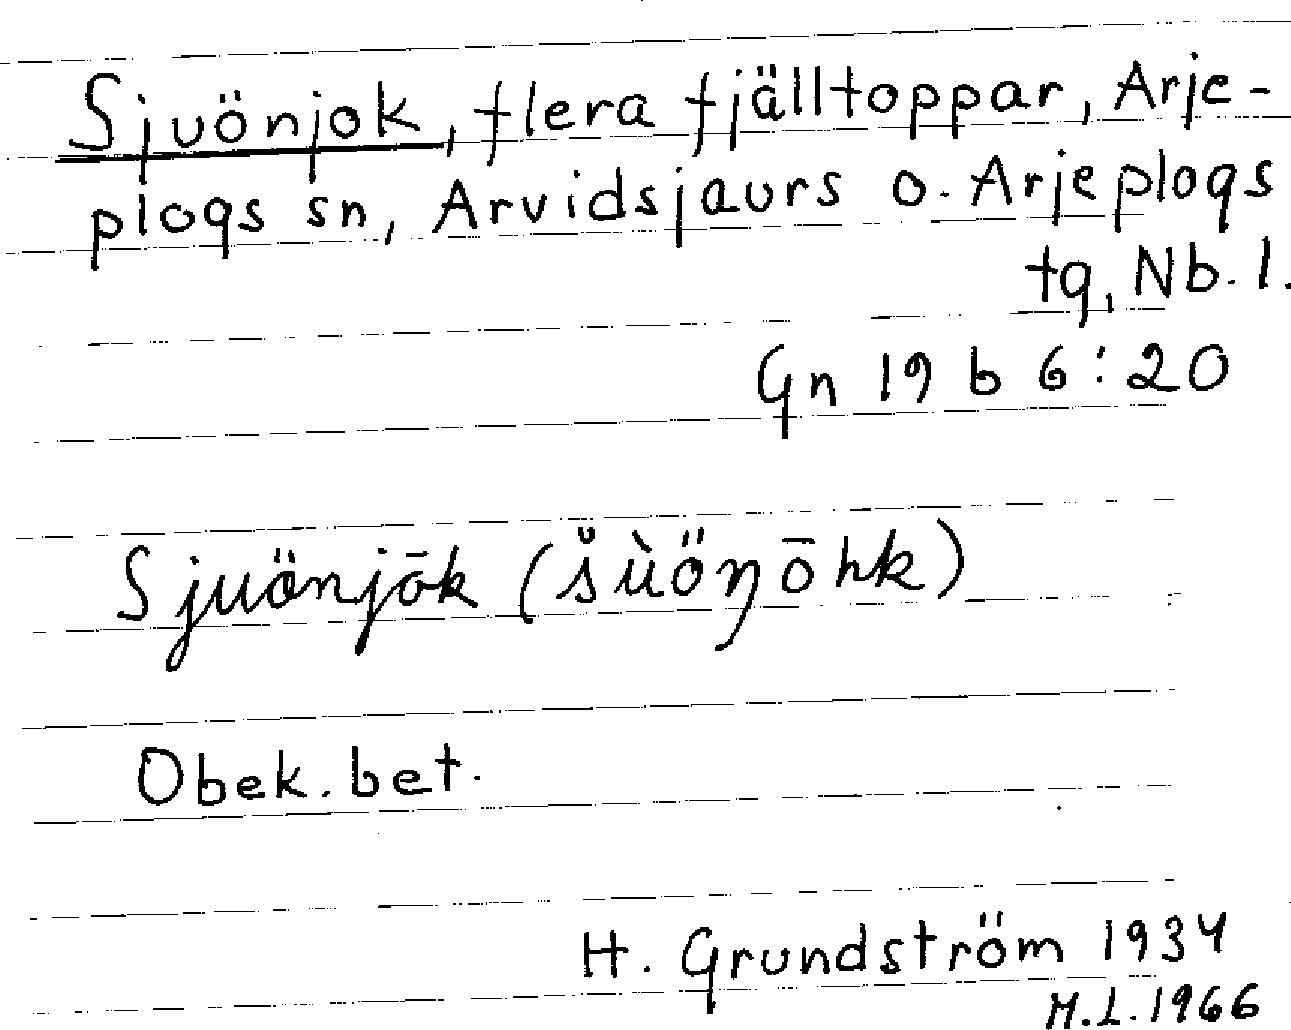 Sjuönjok, flera fjälltoppar, Arje-
plogs sn, Arvidsjaurs o. Arjeplogs
tg, Nb. l.
Gn 19 b 6:20
Sjuönjōk (s̆ùöŋōhk)
Obek. bet.
H. Grundström 1934
M.L. 1966